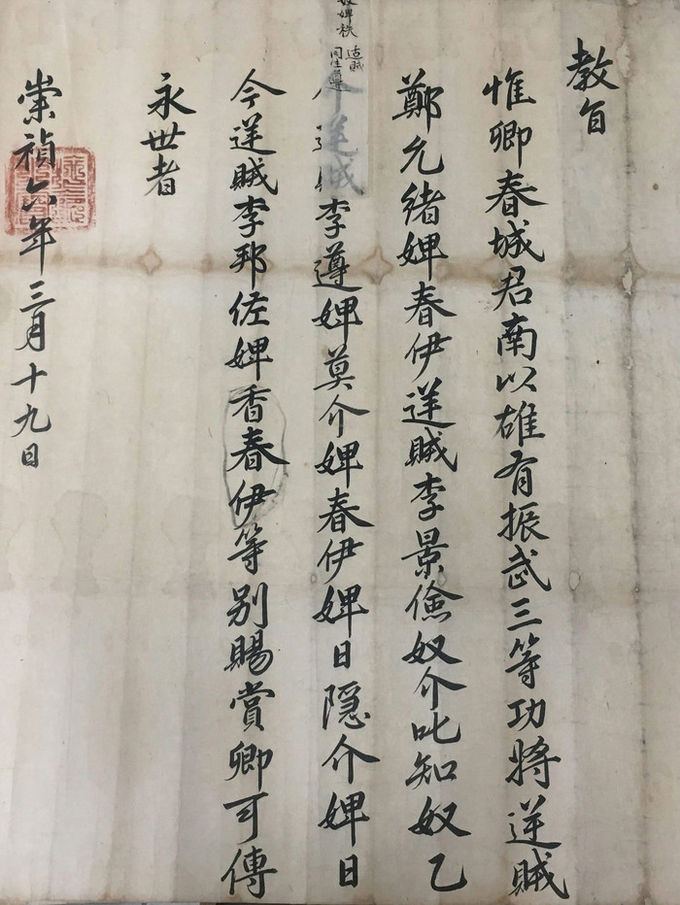 教旨
惟卿春城君南以雄有振武三等功將逆賊
鄭允緒婢春伊逆賊李景儉奴介叱知奴乙
婢秩
今逆賊李遵婢莫介婢春伊婢日隱介婢日
今逆賊李邦佐婢香春伊等別賜賞卿可傳
永世者
崇禎六年三月十九日